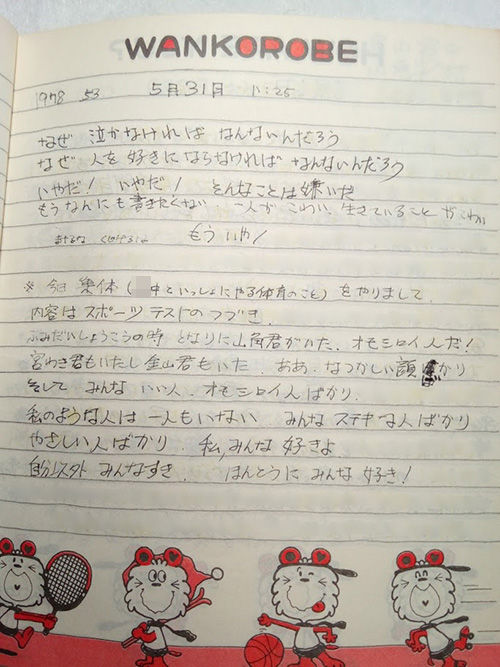 WANKOROBE
1978 53 5月31日 1:25
なぜ 泣かなければ なんないんだろう
なぜ 人を好きにならなければ なんないんだろう
いやだ! いやだ! そんなことは嫌いだ
もうなんにも書きたくない. 一人がこわい. 生きていること がこわい
もういや!
※ 今日 集体 (中といっしょにやる体育のこと) をやりまして.
内容はスポーツ テストのつづき.
ふみだいしょうこうの時 となりに山角君がいた. オモシロイ人だ!
宮わき君もいたし 金山君もいた. ああ. なつかしい顔ばかり
そして みんな いい人. オモシロイ人ばかり.
私のような人は 一人もいない みんな ステキな人ばかり
やさしい人ばかり 私, みんな 好きよ.
自分以外 みんなすき. ほんとうに みんな 好き!